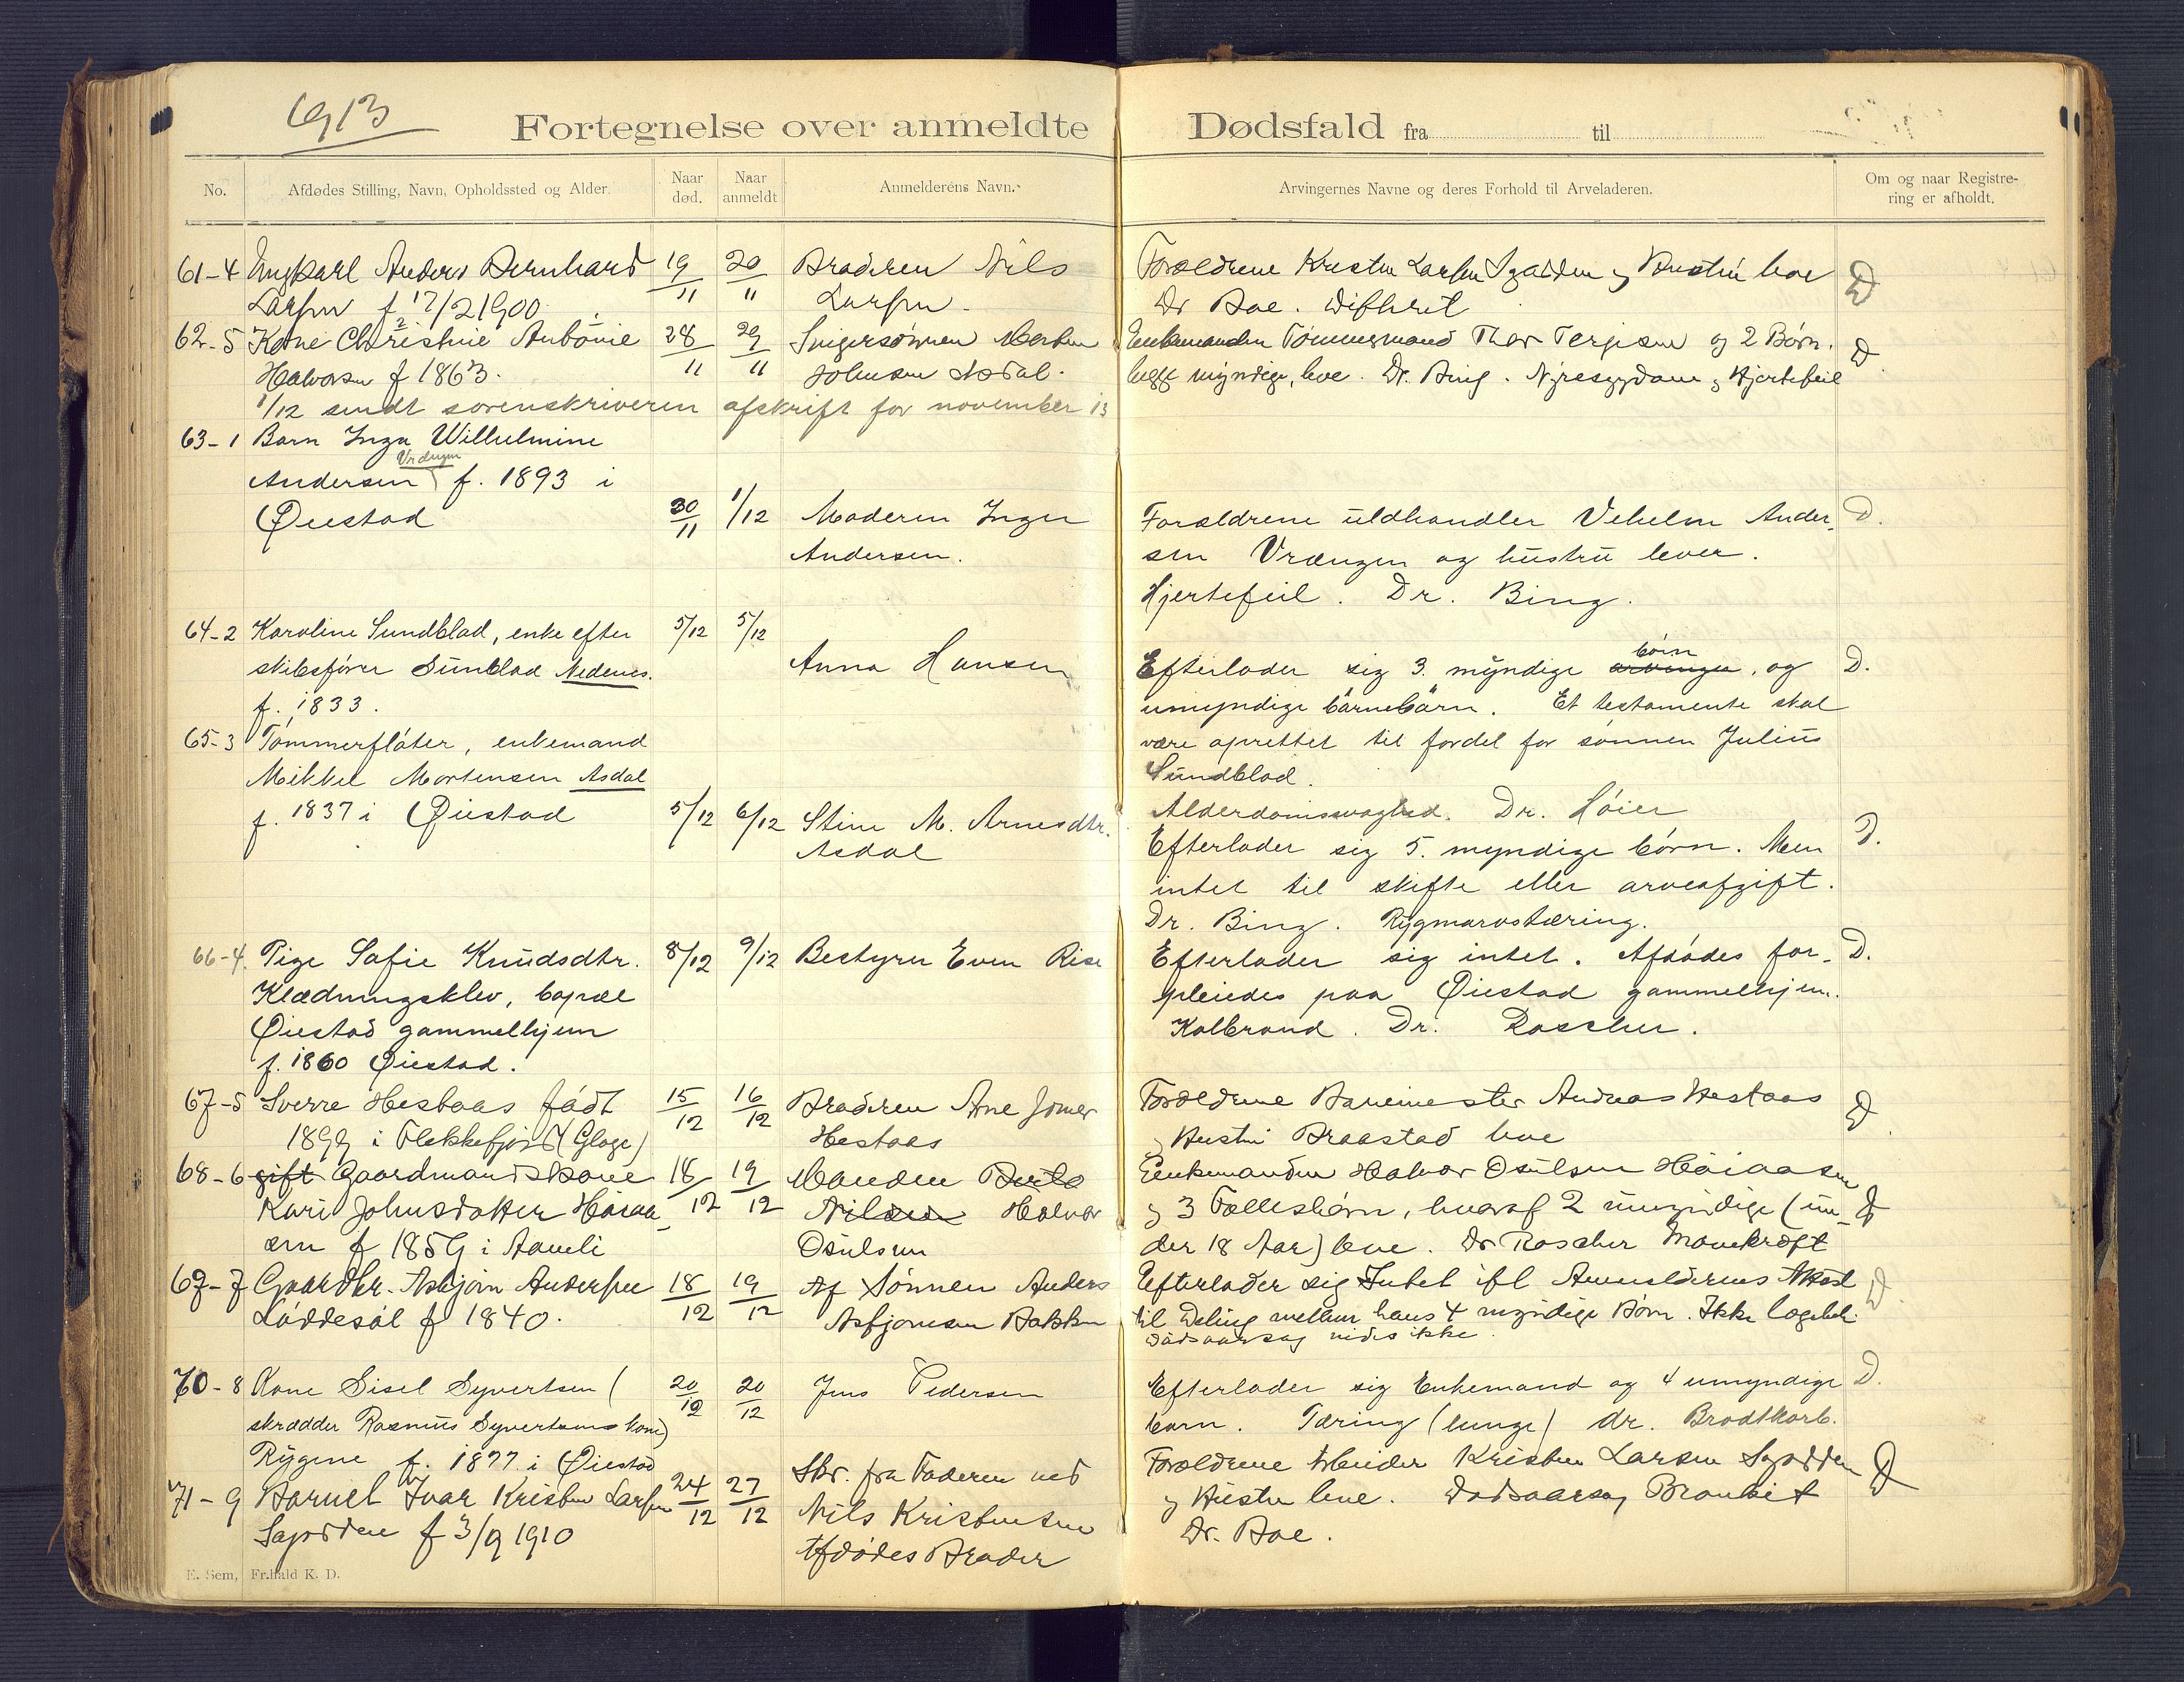 1913
Fortegnelse over anmeldte Dødsfald fra til
No.
Afdødes Stilling, Navn, Opholdssted og Alder.
Naar død.
Naar anmeldt
Anmelderens Navn.
Arvingernes Navne og deres Forhold til Arveladeren.
Om og naar Registrering er afholdt.
61-4 Ungkarl Anders Bernhard 19/11 20/11 Broderen Nils Forældrene Kristen Larsen og Hustru leve D
Larsen f 17/2 1900 Larsen. Dr Boe. Difterit
62-5 Kone Christine Antonie 28/11 29/11 Svigersønnen Morten Enkemanden Tømmermand Thor Terjesen og 2 Børn. D
Halvorsen f 1863. Johnsen Asdal. begge myndige, leve. Dr. Bing. Nyresygdom og Hjertefeil
1/12 sendt sorenskriveren afskrift for november 13
63-1 Barn Inga Wilhelmine
Vrængen
Andersen f. 1893 i
Øiestad 30/11 1/12 Moderen Inger Forældrene uldhandler Vehelm Ander- D.
Andersen. sen Vrængen og hustru lever.
Hjertefeil. Dr. Bing.
64-2 Karoline Sundblad, enke efter 5/12 5/12
skibsfører Sunblad Nedenes. Anna Hansen Efterlader sig 3. myndige arvinger børn, og D.
f. 1833. umyndige barnebarn. Et testamente skal
65-3 Tømmerfløter, enkemand være oprettet til fordel for sønnen Julius
Mikkel Mortensen Asdal Sundblad.
f. 1837 i Øiestad 5/12 6/12 Stine M. Arnesdtr. Alderdomssvaghed. Dr. Høier
Asdal Efterlader sig 5. myndige børn. Men D.
intet til skifte eller arveafgift.
Dr. Bing. Rygmarvstæring.
66-4. Pige Sofie Knudsdtr. 8/12 9/12 Bestyrer Even Rise Efterlader sig intet. Afdødes for- D.
Klædningsklev, bopæl pleiedes paa Øiestad gammelhjem.
Øiestad gammelhjem Kolbrand. Dr. Roscher.
f. 1860 Øiestad.
67-5 Sverre Hestaas født 15/12 16/12 Broderen Arne Forældrene Banemester Andreas Hestaas D
1899 i Flekkefjord Hestaas og Hustru Braastad leve
68-6 gift Gaardmandskone 18/12 19/12 Manden Nilsen Halvor Enkemanden Halvor Osulsen Høiaasen
Kari Johnsdatter Høiaa- Osulsen og 3 Fællesbørn, hvoraf 2 umyndige (un- D
sen f 1859 i Aamli der 18 Aar) leve. Dr Roscher Mavekræft
69-7 Gaardbr. Asbjørn Andersen 18/12 19/12 Af Sønnen Anders Efterlader sig Intet ifl Anmelderens D
Løddesøl f 1840. Asbjørnsen Bakken til Deling mellem hans 4 myndige Børn. Ikke lægebeh.
Dødsaarsag vides ikke.
70-8 Kone Sisel Syvertsen ( 20/12 20/12 Jens Pedersen Efterlader sig Enkemand og 4 umyndige D.
skrædder Rasmus Syvertsens kone) barn. Tæring (lunge) dr. Brodtkorb.
Rygene f. 1877 i Øiestad
71-9 Barnet Ivar Kristen Larsen 24/12 27/12 Skr. fra Faderen ved Forældrene Arbeider Kristen Larsen D
f 3/9 1910 Nils Kristensen og Hustru leve. Dødsaarsag Bronkit
Afdødes Broder Dr. Boe.
E. Sem, Fr.hald K. D.